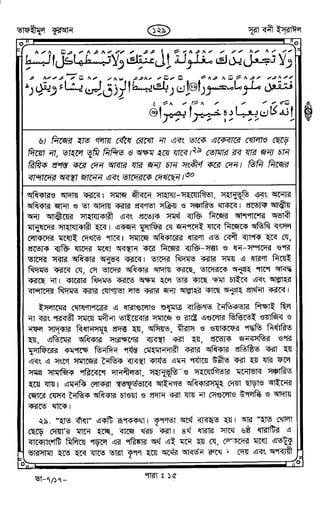 তাফহীমুল কুরআন
১২৯
সূরা বনী ইসরাঈল
وَلَا تَجْعَلْ يَدَكَ مَغْلُولَةً إِلَى عُنُقِكَ وَلَا تَبْسُطْهَا كُلَّ الْبَسْطِ
فَتَقْعُدَ مَلُومًا مَّحْسُورًا ۝ إِنَّ رَبَّكَ يَبْسُطُ الرِّزْقَ لِمَن يَشَاءُ وَيَقْدِرُ
إِنَّهُ كَانَ بِعِبَادِهِ خَبِيرًا بَصِيرًا ۝
৬) নিজের হাত গলায় বেঁধে রেখো না এবং তাকে একেবারে খোলাও ছেড়ে
দিয়ো না, তাহলে তুমি নিন্দিত ও অক্ষম হয়ে যাবে।২৯ তোমার রব যার জন্য চান
রিযিক প্রশস্ত করে দেন আবার যার জন্য চান সংকীর্ণ করে দেন। তিনি নিজের
বান্দাদের অবস্থা জানেন এবং তাদেরকে দেখছেন।৩০
অধিকারও আদায় করবে। সমাজ জীবনে সাহায্য-সহযোগিতা, সহানুভূতি এবং অন্যের
অধিকার জানা ও তা আদায় করার প্রবণতা সক্রিয় ও সঞ্চারিত থাকবে। প্রত্যেক আত্মীয়
অন্য আত্মীয়ের সাহায্যকারী এবং প্রত্যেক সমর্থ ব্যক্তি নিজের আশপাশের অভাবী
মানুষদের সাহায্যকারী হবে। একজন মুসাফির যে জনপদেই যাবে নিজেকে অতিথি বৎসল
লোকদের মধ্যেই দেখতে পাবে। সমাজে অধিকারের ধারণা এত বেশী ব্যাপক হবে যে,
প্রত্যেক ব্যক্তি যাদের মধ্যে অবস্থান করে নিজের ব্যক্তি-সত্তা ও ধন-সম্পদের ওপর
তাদের সবার অধিকার অনুভব করবে। তাদের খিদমত করার সময় এ ধারণা নিয়েই
খিদমত করবে যে, সে তাদের অধিকার আদায় করছে, তাদেরকে অনুগ্রহ পাশে আবদ্ধ
করছে না। কারোর খিদমত করতে অক্ষম হলে তার কাছে ক্ষমা চাইবে এবং আল্লাহর
বান্দাদের খিদমত করার যোগ্যতা লাভ করার জন্য আল্লাহর কাছে অনুগ্রহ প্রার্থনা করবে।
ইসলামের ঘোষণাপত্রের এ ধারাগুলোও শুধুমাত্র ব্যক্তিগত নৈতিকতার শিক্ষাই ছিল
না বরং পরবর্তী সময়ে মদীনা তাইয়েবার সমাজে ও রাষ্ট্রে এগুলোর ভিত্তিতেই ওয়াজিব ও
নফল সাদ্‌কার বিধানসমূহ প্রদত্ত হয়, অসিয়ত, মীরাস ও ওয়াকফের পদ্ধতি নির্ধারিত
হয়, এতিমের অধিকার সংরক্ষণের ব্যবস্থা করা হয়, প্রত্যেক জনবসতির ওপর
মুসাফিরের কমপক্ষে তিনদিন পর্যন্ত মেহমানদারী করার অধিকার প্রতিষ্ঠিত করা হয়
এবং এ সংগে সমাজের নৈতিক ব্যবস্থা কার্যত এমন পর্যায়ে উন্নীত করা হয় যার ফলে
সমগ্র সামাজিক পরিবেশে দানশীলতা, সহানুভূতি ও সহযোগিতার মনোভাব সঞ্চারিত
হয়ে যায়। এমনকি লোকেরা স্বতস্ফূর্তভাবে আইনগত অধিকারসমূহ দেয়া ছাড়াও আইনের
জোরে যেসব নৈতিক অধিকার চাওয়া ও প্রদান করা যায় না সেগুলোও উপলব্ধি ও আদায়
করতে থাকে।
২৯. "হাত বাঁধা" একটি রূপককথা। কৃপণতা অর্থে ব্যবহৃত হয়। আর "হাত খোলা
ছেড়ে দেয়া"র মানে হচ্ছে, বাজে খরচ করা। ৪র্থ ধারার সাথে ৬ষ্ঠ ধারাটির এ
বাক্যাংশটি মিলিয়ে পড়লে এর পরিষ্কার অর্থ এই মনে হয় যে, লোকদের মধ্যে এতটুকু
ভারসাম্য হতে হবে যাতে তারা কৃপণ হয়ে অর্থের আবর্তন রুখে না দেয় এবং অপব্যয়ী
তা-৭/১৭-
পারা : ১৫